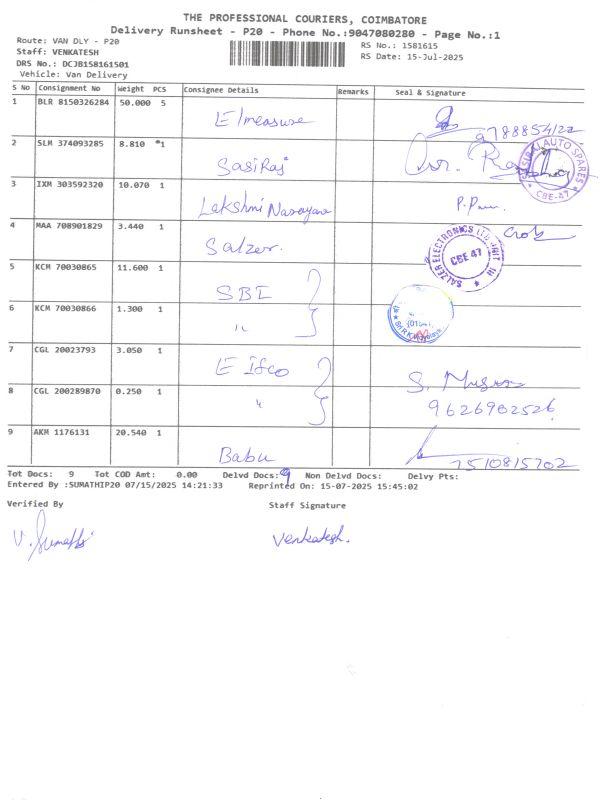 THE PROFESSIONAL COURIERS, COIMBATORE
Delivery Runsheet - P20 - Phone No.:9047080280 - Page No.:1
Route: VAN DLY - P20 RS No.: 1581615
Staff: VENKATESH RS Date: 15-Jul-2025
DRS No.: DCJB158161501
Vehicle: Van Delivery
S No Consignment No Weight PCS Consignee Details Remarks Seal & Signature
1 BLR 8150326284 50.000 5 Elmeasure
2 SLM 374093285 8.810 *1 Sasiraj SASIRAJ AUTO SPARES * CBE-47 *
3 IXM 303592320 10.070 1 Lakshmi Narayana
4 MAA 708901829 3.440 1 Salzer. SALZER ELECTRONICS LTD UNIT IV CBE 47
5 KCM 70030865 11.600 1 SBI
6 KCM 70030866 1.300 1 "
7 CGL 20023793 3.050 1
8 CGL 200289870 0.250 1 " 9626902526
9 AKM 1176131 20.540 1 Babu 7510815702
Tot Docs: 9 Tot COD Amt: 0.00 Delvd Docs: 9 Non Delvd Docs: Delvy Pts:
Entered By :SUMATHIP20 07/15/2025 14:21:33 Reprinted On: 15-07-2025 15:45:02
Verified By Staff Signature
V. Sumathi Venkatesh.